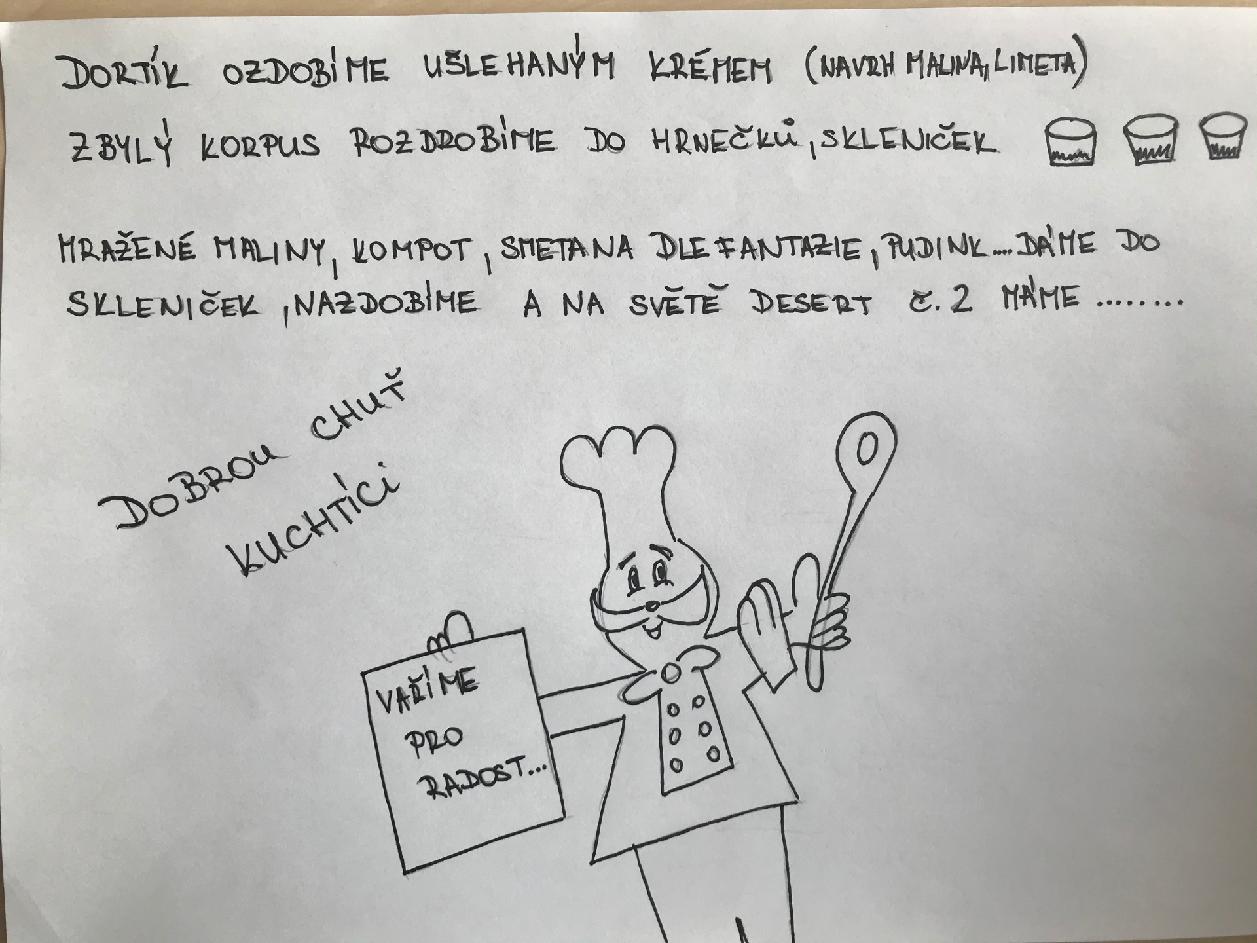 DORTÍK OZDOBÍME UŠLEHANÝM KRÉMEM (NAVRH MALINA, LIMETA)
ZBYLÝ KORPUS ROZDROBÍME DO HRNEČKŮ, SKLENIČEK
MRAŽENÉ MALINY, KOMPOT, SMETANA DLE FANTAZIE, PUDINK....DÁME DO
SKLENIČEK, NAZDOBÍME A NA SVĚTĚ DESERT Č. 2 MÁME ........
DOBROU CHUŤ
KUCHTÍCI
VAŘÍME
PRO
RADOST...